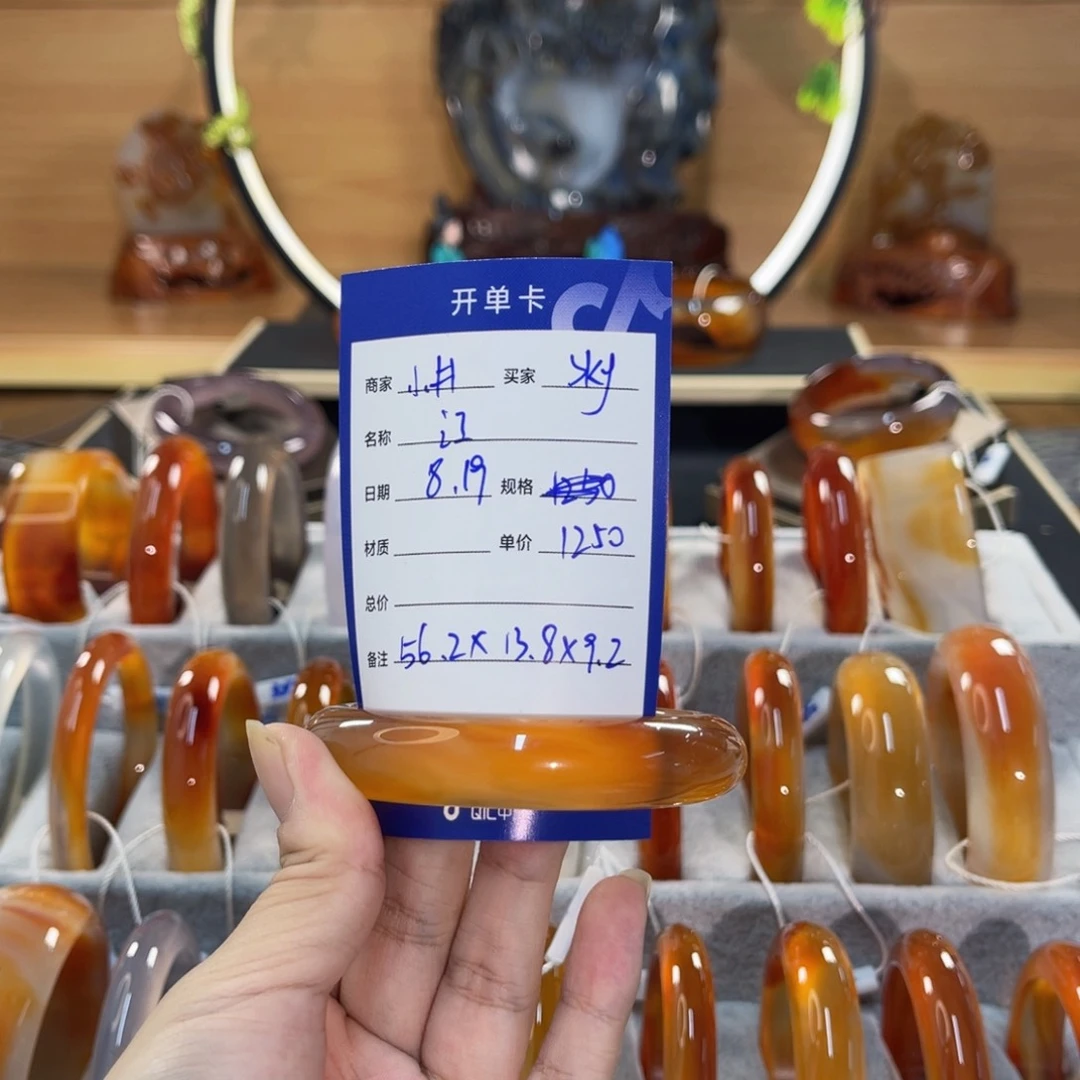 开单卡
商家 小井 买家 sky
名称 江
日期 8.19 规格
材质 单价 1250
总价
备注 56.2x13.8x9.2
QIC中